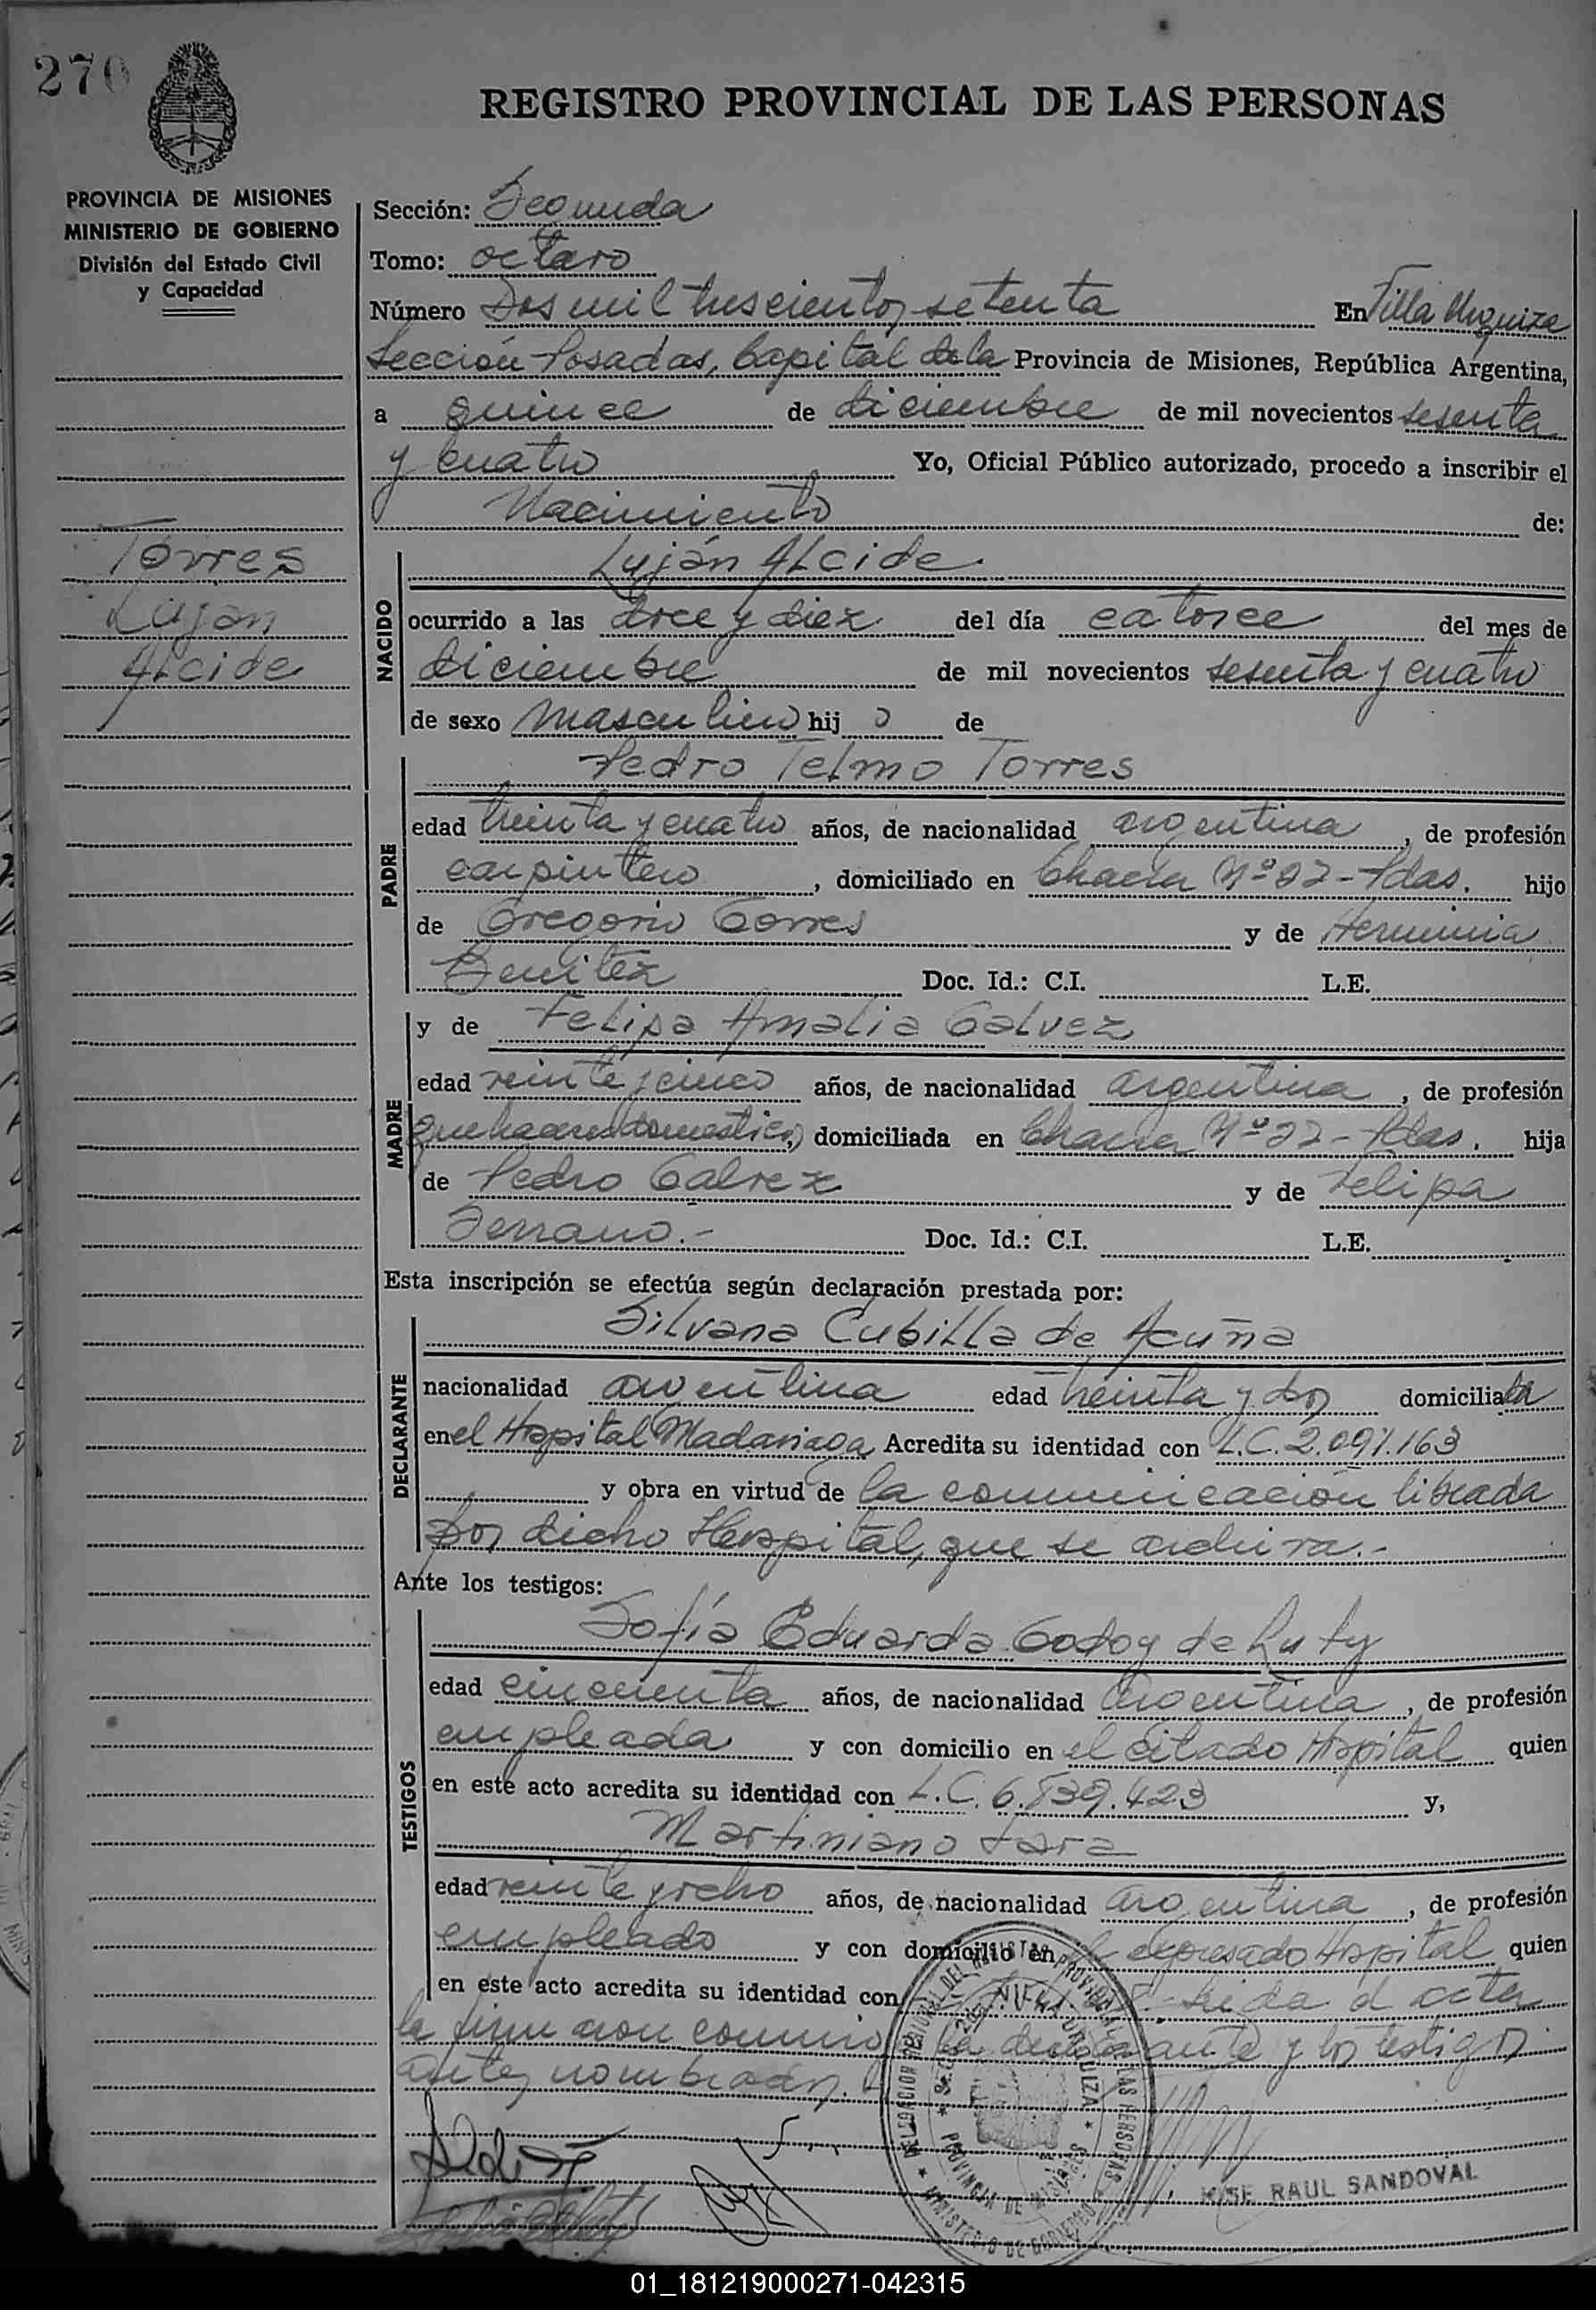 270
REGISTRO PROVINCIAL DE LAS PERSONAS
PROVINCIA DE MISIONES
MINISTERIO DE GOBIERNO
División del Estado Civil
y Capacidad
Torres
Luján
Alcide
Sección: Segunda
Tomo: octavo
Número Dos mil trescientos setenta En Villa Urquiza
Sección Posadas, Capital de la Provincia de Misiones, República Argentina,
a quince de diciembre de mil novecientos sesenta
y cuatro Yo, Oficial Público autorizado, procedo a inscribir el
Nacimiento de:
NACIDO
Luján Alcide
ocurrido a las doce y diez del día catorce del mes de
diciembre de mil novecientos sesenta y cuatro
de sexo masculino hij o de
PADRE
Pedro Telmo Torres
edad treinta y cuatro años, de nacionalidad argentina, de profesión
carpintero, domiciliado en Chacra Nº 22 - Pdas. hijo
de Gregorio Torres y de Herminia
Benitez Doc. Id.: C.I. L.E.
MADRE
y de Felipa Amalia Galvez
edad veinte y cinco años, de nacionalidad argentina, de profesión
quehaceres domesticos, domiciliada en Chacra Nº 22 - Pdas. hija
de Pedro Galvez y de Felipa
Serrano.- Doc. Id.: C.I. L.E.
Esta inscripción se efectúa según declaración prestada por:
DECLARANTE
Silvana Cubilla de Acuña
nacionalidad argentina edad treinta y dos domiciliada
en el Hospital Madariaga Acredita su identidad con L.C. 2.091.163
y obra en virtud de la comunicación librada
por dicho Hospital, que se archiva.-
Ante los testigos:
TESTIGOS
Sofía Eduarda Godoy de
edad cincuenta años, de nacionalidad argentina, de profesión
empleada y con domicilio en el citado Hospital quien
en este acto acredita su identidad con L.C. 6.839.423 y,
Martiniano Jara
edad veinte y ocho años, de nacionalidad argentina, de profesión
empleado y con domicilio en el expresado Hospital quien
en este acto acredita su identidad con Leida el acta
la firmaron conmigo la declarante y los testigos
antes nombrados.
DELEGACION REGIONAL DEL REGISTRO PROVINCIAL DE LAS PERSONAS
MINISTERIO DE GOBIERNO
VILLA URQUIZA
PROVINCIA DE MISIONES
JOSE RAUL SANDOVAL
01_181219000271-042315